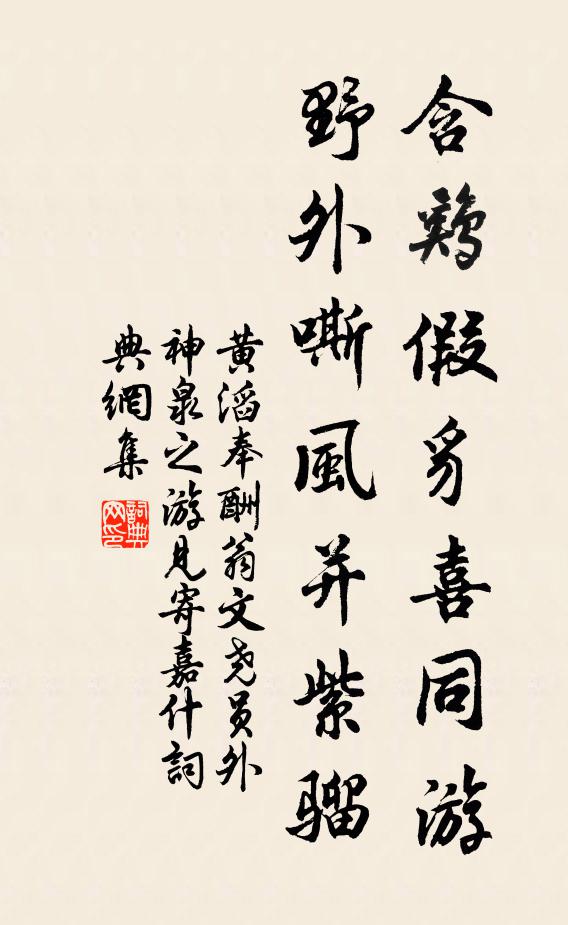 含鷄假豸喜同游
野外嘶風并紫骝
黄滔奉酬翁文尧员外
神泉之游见寄嘉什詞
典網集
詞典网印